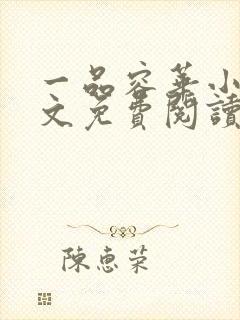 一品容華小
文免費閱讀
陳惠榮